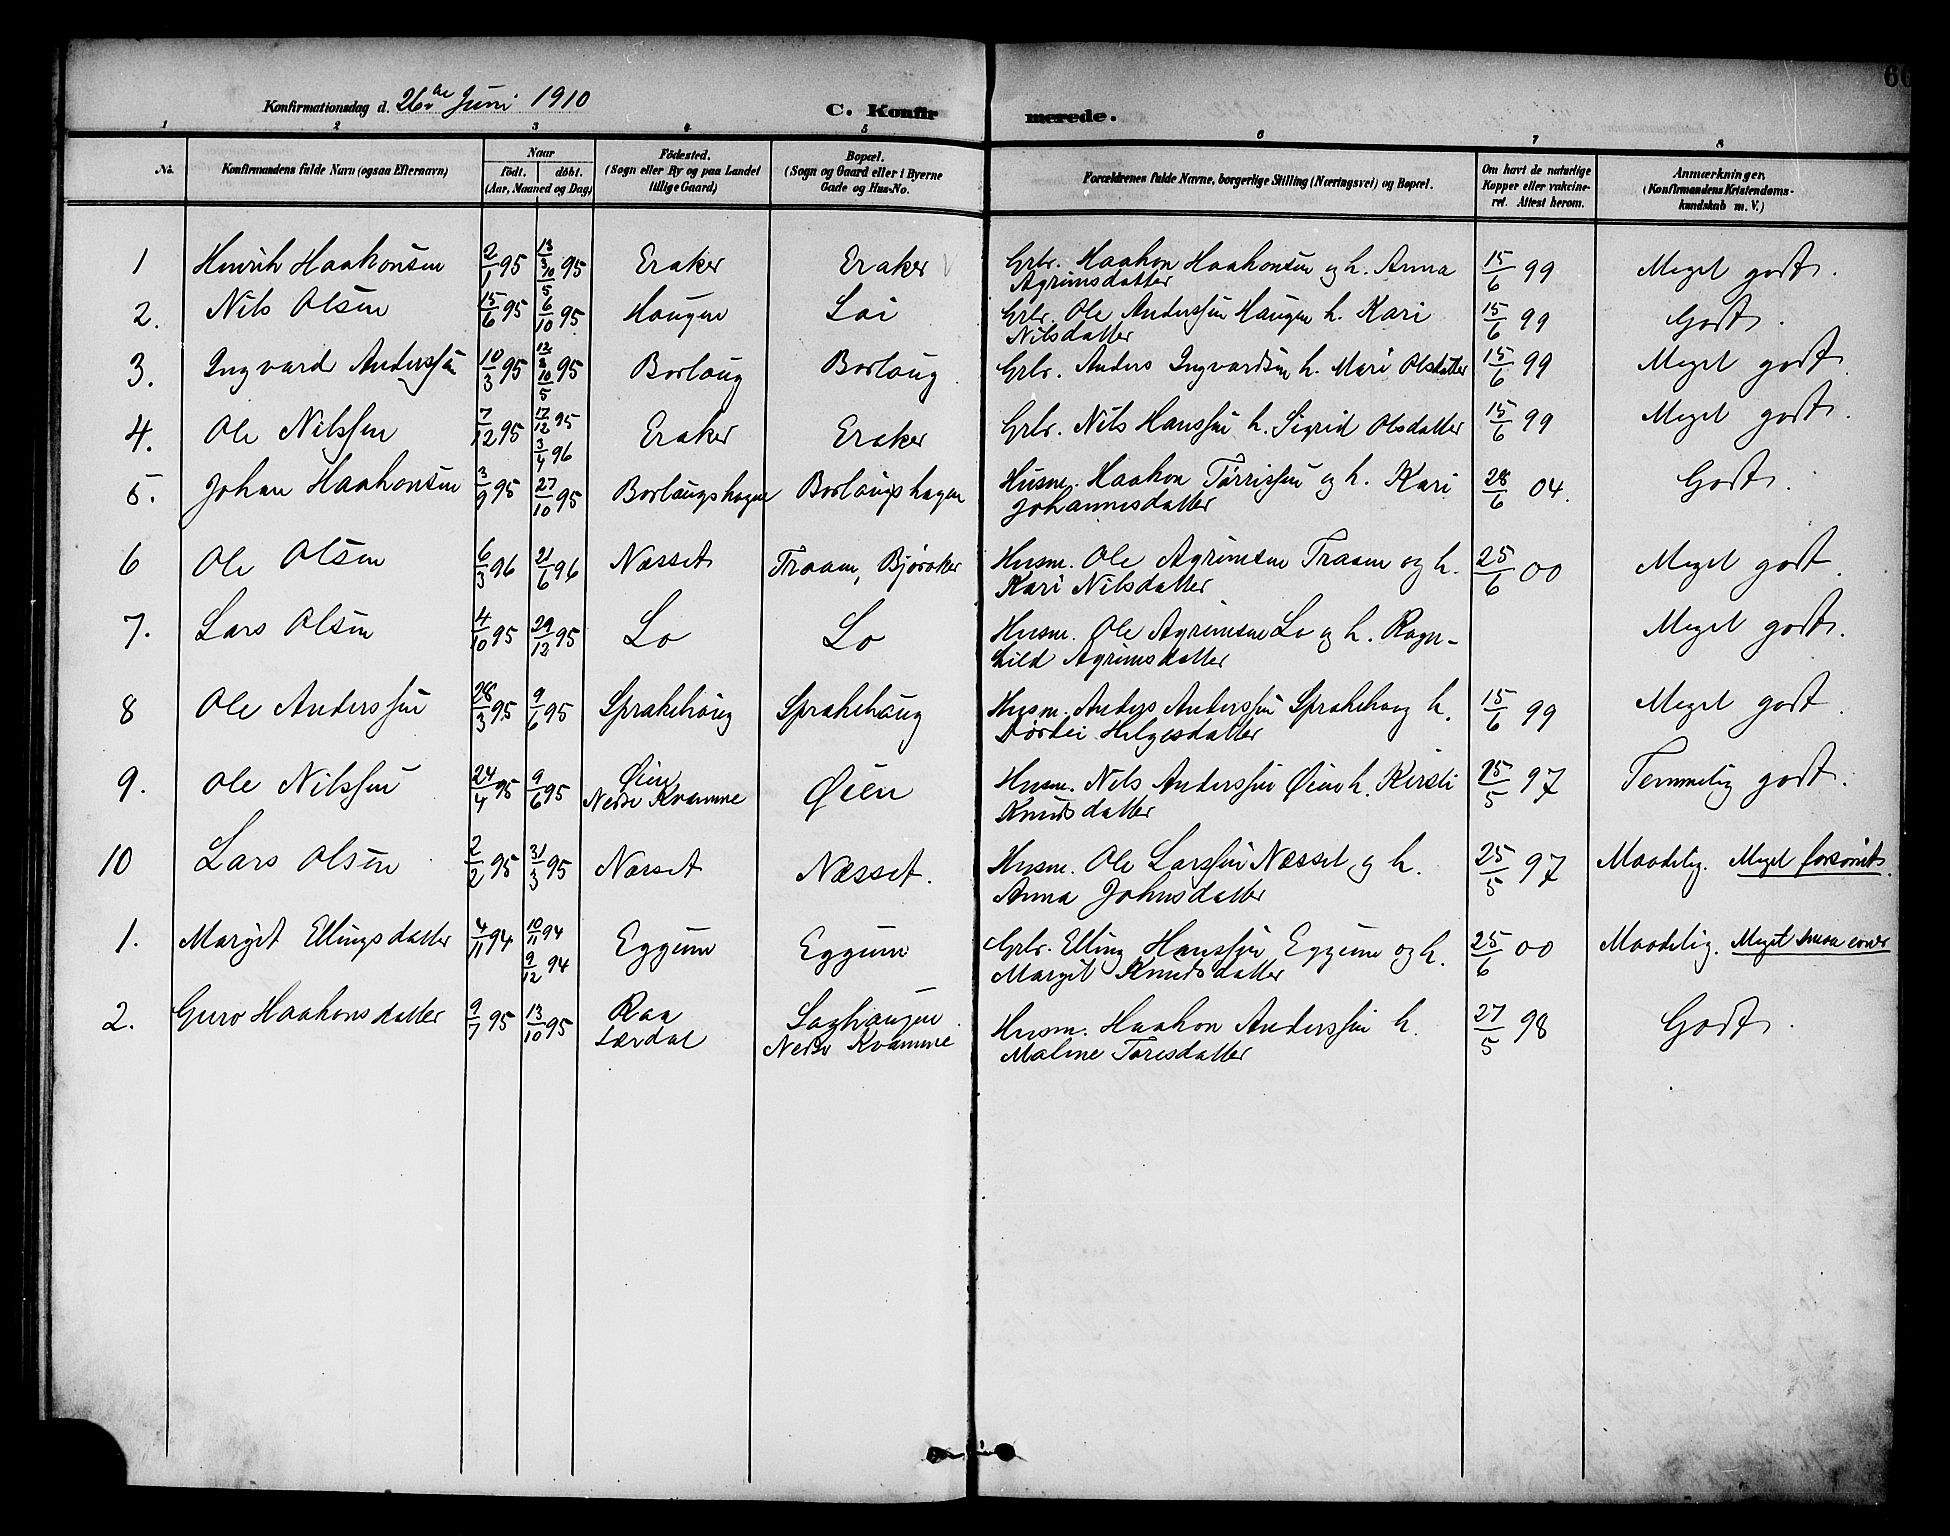 Konfirmationsdag d. 26de Juni 1910
C. Konfir
merede.
1 2 3 4 5 6 7 8
No.
Konfirmandens fulde Navn (ogsaa Efternavn)
Naar
født. døbt.
(Aar, Maaned og Dag)
Fødested.
(Sogn eller By og paa Landet
tillige Gaard)
Bopæl.
(Sogn og Gaard eller i Byerne
Gade og Hus-No.
Forældrenes fulde Navne, borgerlige Stilling (Næringsvei) og Bopæl.
Om havt de naturlige
Kopper eller vakcine-
ret. Attest herom.
Anmærkninger.
(Konfirmandens Kristendoms-
kundskab m. V.)
1 Henrik Haakonsen 2/1 95 13/3 10/5 95 Eraker Eraker Grbr. Haakon Haakonsen og h. Anna 15/6 99 Meget godt.
Agrimsdatter
2. Nils Olsen 15/6 95 6/10 95 Haugen Loi Grbr. Ole Anderssen Haugen h. Kari 15/6 99 Godt.
Nilsdatter
3. Ingvard Anderssen 10/3 95 12/3 10/5 95 Borlaug Borlaug. Grbr. Anders Ingvardsen h. Mari Olsdatter 15/6 99 Meget godt.
4. Ole Nilssen 7/12 95 17/12 95 3/4 96 Eraker Eraker Grbr. Nils Hanssen h. Sigrid Olsdatter 15/6 99 Meget godt.
5. Johan Haakonsen 3/9 95 27/10 95 Borlaugshagen Borlaugshagen Husm. Haakon Tørrissen og h. Kari 28/6 04. Godt.
Johannesdatter
6 Ole Olsen 6/3 96 21/6 96 Næsset Traam, Bjøraker Husm. Ole Agrimsen Traam og h. 25/6 00 Meget godt.
Kari Nilsdatter
7. Lars Olsen 4/10 95 29/12 95 Lo Lo Husm. Ole Agrimsen Lo og h. Ragn-
hild Agrimsdatter Meget godt.
8 Ole Anderssen 28/3 95 9/6 95 Sprakehaug Sprakehaug Husm. Anders Anderssen Sprakehaug h. 15/6 99 Meget godt.
Dørdei Helgesdatter
9. Ole Nilssen 24/4 95 9/6 95 Øien Øien Husm. Nils Anderssen Øien h. Kirsti 15/5 97 Temmelig godt.
Nedre Kvamme Knudsdatter
10 Lars Olsen 2/2 95 31/3 95 Næsset Næsset. Husm. Ole Larssen Næsset og h. 25/5 97 Maadelig. Meget forsømt.
Anna Johnsdatter
1. Margit Ellingsdatter 4/11 94 10/11 94 9/12 94 Eggum Eggum Grbr. Elling Hanssen Eggum og h. 25/6 00 Maadelig. Meget
Margit Knudsdatter
2. Guro Haakonsdatter 9/7 95 13/10 95 Raa Saghaugen Husm. Haakon Anderssen h. 27/5 98 Godt.
Lærdal Nedre Kvamme Maline Toresdatter